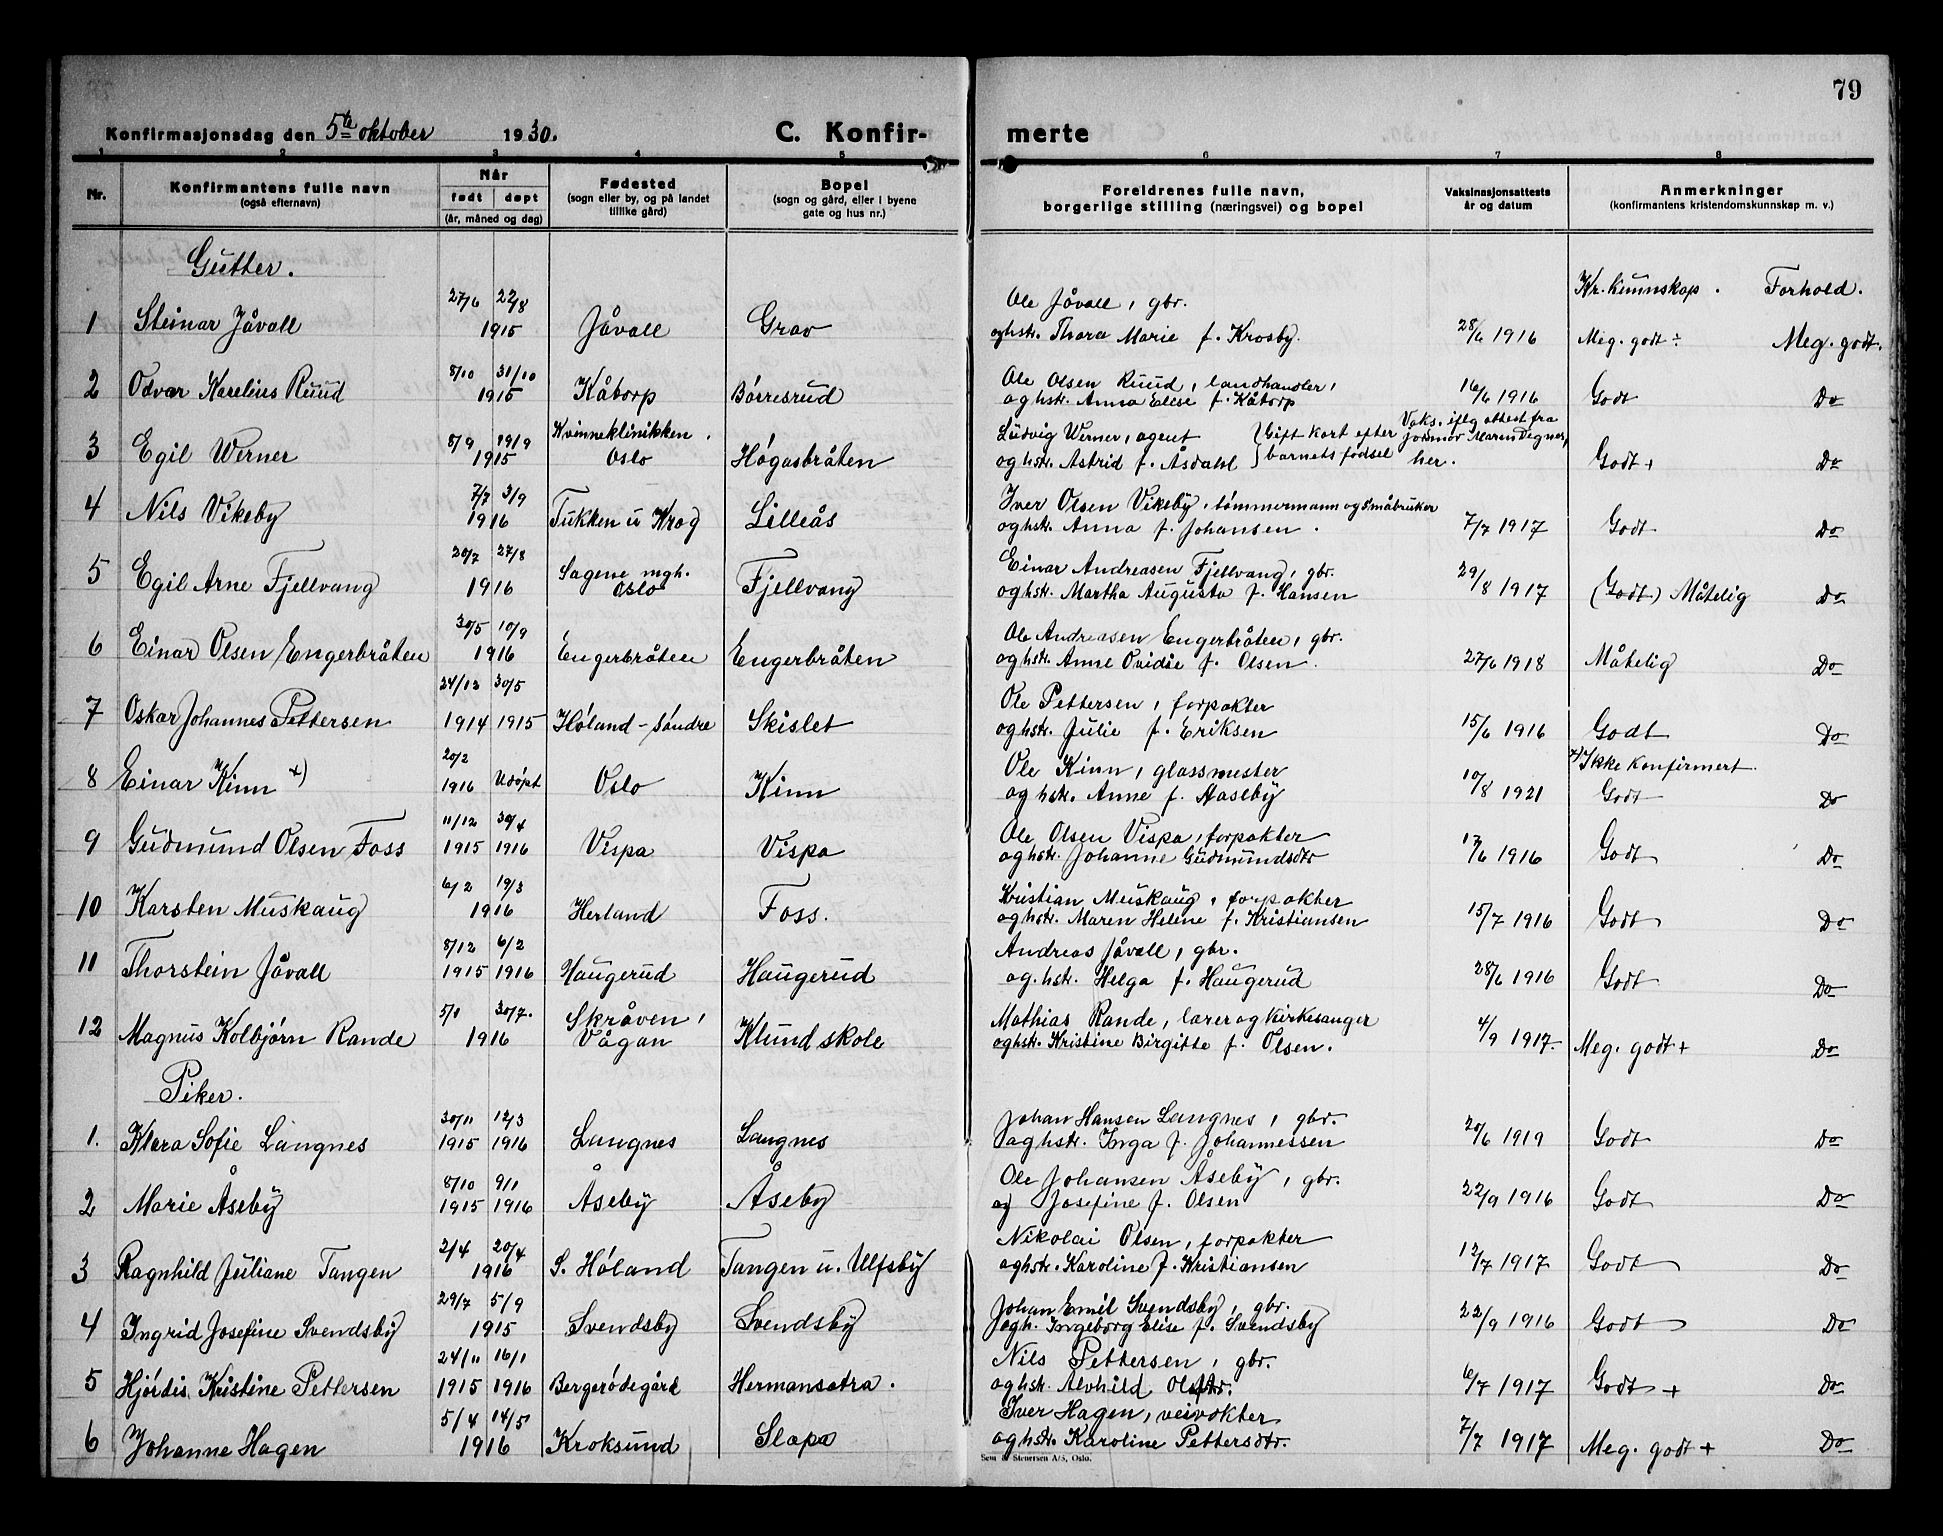 79
Konfirmasjonsdag den 5te oktober 1930. C. Konfir- merte
1 2 3 4 5 6 7 8
Nr. Konfirmantens fulle navn (også efternavn) Når født døpt (år, måned og dag) Fødested (sogn eller by, og på landet tillike gård) Bopel (sogn og gård, eller i byene gate og hus nr.) Foreldrenes fulle navn, borgerlige stilling (næringsvei) og bopel Vaksinasjonsattests år og datum Anmerkninger (konfirmantens kristendomskunnskap m. v.)
Gutter. Kr. kunnskap. Forhold.
1 Steinar Jåvall 27/6 22/8 1915 Jåvall Grav Ole Jåvall, gbr. og hstr. Thora Marie f. Krosby. 28/6 1916 Meg. godt ÷ Meg. godt.
2 Odvar Karelius Ruud 8/10 31/10 1915 Kåtorp Børresrud Ole Olsen Ruud, landhandler, og hstr. Anna Elise f. Kåtorp 16/6 1916 Godt Do
3 Egil Werner 8/9 19/9 1915 Kvinneklinikken. Oslo Høgåsbråten Ludvig Werner, agent og hstr. Astrid f. Åsdahl } Gift kort efter barnets fødsel Vaks. iflg attest fra jordmor Maren Degnes, her. Godt + Do
4 Nils Vikeby 7/7 3/9 1916 Tukken u Krog Lilleås Iver Olsen Vikeby, tømmermann og småbruker og hstr. Anna f. Johansen. 7/7 1917 Godt Do
5 Egil Arne Fjellvang 20/7 27/8 1916 Sagene mgh. Oslo Fjellvang Einar Andreasen Fjellvang, gbr. og hstr. Martha Augusta f. Hansen 29/8 1917 (Godt) Måtelig Do
6 Einar Olsen Engerbråten 30/5 10/9 1916 Engerbråten Engerbråten Ole Andreasen Engerbråten, gbr. og hstr. Anne Ovidie f. Olsen. 27/6 1918 Måtelig Do
7 Oskar Johannes Pettersen 24/12 1914 30/5 1915 Høland - søndre Skislet Ole Pettersen, forpakter og hstr. Julie f. Eriksen 15/6 1916 Godt Do
8 Einar Kinn x) 20/2 1916 Udøpt Oslo Kinn Ole Kinn, glassmester og hstr. Anne f. Aaseby 10/8 1921 x) Ikke konfirmert. Godt Do
9 Gudmund Olsen Foss 11/12 1915 30/4 1916 Vispa Vispa Ole Olsen Vispa, forpakter og hstr. Johanne Gudmundsdtr 1916 Godt Do
10 Karsten Muskaug 6/2 19/3 1916 Herland Foss. Kristian Muskaug, forpakter og hstr. Maren Helene f. Kristiansen 15/7 1916 Godt Do
11 Thorstein Jåvall 8/12 1915 6/2 1916 Haugerud Haugerud Andreas Jåvall, gbr. og. hstr. Helga f. Haugerud 28/6 1916 Godt Do
12 Magnus Kolbjørn Rande 5/1 30/7. 1916 Skråven, Vågan Klund skole Mathias Rande, lærer og kirkesanger og hstr. Kristine Birgitte f. Olsen. 4/9 1917. Meg. godt + Do
Piker.
1. Klara Sofie Langnes 30/11 1915 12/3 1916 Langnes Langnes Johan Hansen Langnes, gbr. og hstr. Inga f. Johannessen 20/6 1919 Godt Do
2 Marie Åseby 8/10 1915 9/1 1916 Åseby Åseby Ole Johansen Åseby, gbr. og Josefine f. Olsen 22/9 1916 Godt Do
3 Ragnhild Juliane Tangen 2/4 20/4 1916 S. Høland Tangen u. Ulfsby Nikolai Olsen, forpakter og hstr. Karoline f. Kristiansen 12/7 1917 Godt Do
4 Ingrid Josefine Svendsby 29/7 5/9 1915 Svendsby Svendsby Johan Emil Svendsby, gbr. og h. Ingeborg Elise f. Svendsby 22/9 1916 Godt Do
5 Hjørdis Kristine Pettersen 24/11 1915 16/1 1916 Bergerødegård Hermansætra. Nils Pettersen, gbr. og hstr. Alvhild 6/7 1917 Godt + Do
6 Johanne Hagen 5/4 14/5 1916 Kroksund Sløpa Iver Hagen, veivokter og hstr. Karoline Pettersdtr. 7/7 1917 Meg. godt + Do
Sem & Stenersen A/S, Oslo.